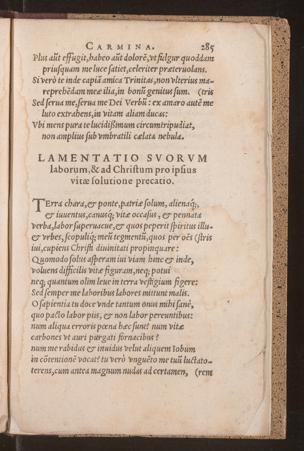 CARMINA. 285
Plus aũt effugit, habeo aũt dolorẽ, vt fulgur quoddam
priusquam me luce satiet, celeriter præteruolans.
Si verò te inde capiã amica Trinitas, non vlterius ma-
reprehẽdam meæ ilia, in bonũ genitus sum. (tris
Sed serua me, serua me Dei Verbũ: ex amaro autẽ me
luto extrahens, in vitam aliam ducas:
Vbi mens pura te lucidißimum circumtripudiat,
non amplius sub vmbratili cælata nebula.
LAMENTATIO SVORVM
laborum, & ad Christum pro ipsius
vitæ solutione precatio.
TErra chara, & ponte, patriæ solum, alienaq́;,
& iuuentus, canusq́; vitæ occasus, & pennata
verba, labor superuacue, & quos peperit spiritus illu-
& vrbes, scopuliq́; meũ tegmentũ, quos per oẽs (stris
iui, cupiens Christi diuinitati propinquare:
Quomodo solus asperam iui viam hinc & inde,
voluens difficilis vitæ figuram, neq; potui
neq; quantum olim leue in terra vestigium figere:
Sed semper me laboribus labores mittunt malis.
O sapientia tu doce vnde tantum onus mihi sanè,
quo pacto labor piis, & non labor pereuntibus:
num aliqua erroris pœna hæc sunt? num vitæ
carbones vt auri purgati fornacibus?
num me rabidus & inuidus velut aliquem Iobum
in cõtentionẽ vocat? tu verò vnguẽto me tuũ luctato-
terens, cum antea magnum nudas ad certamen, (rem